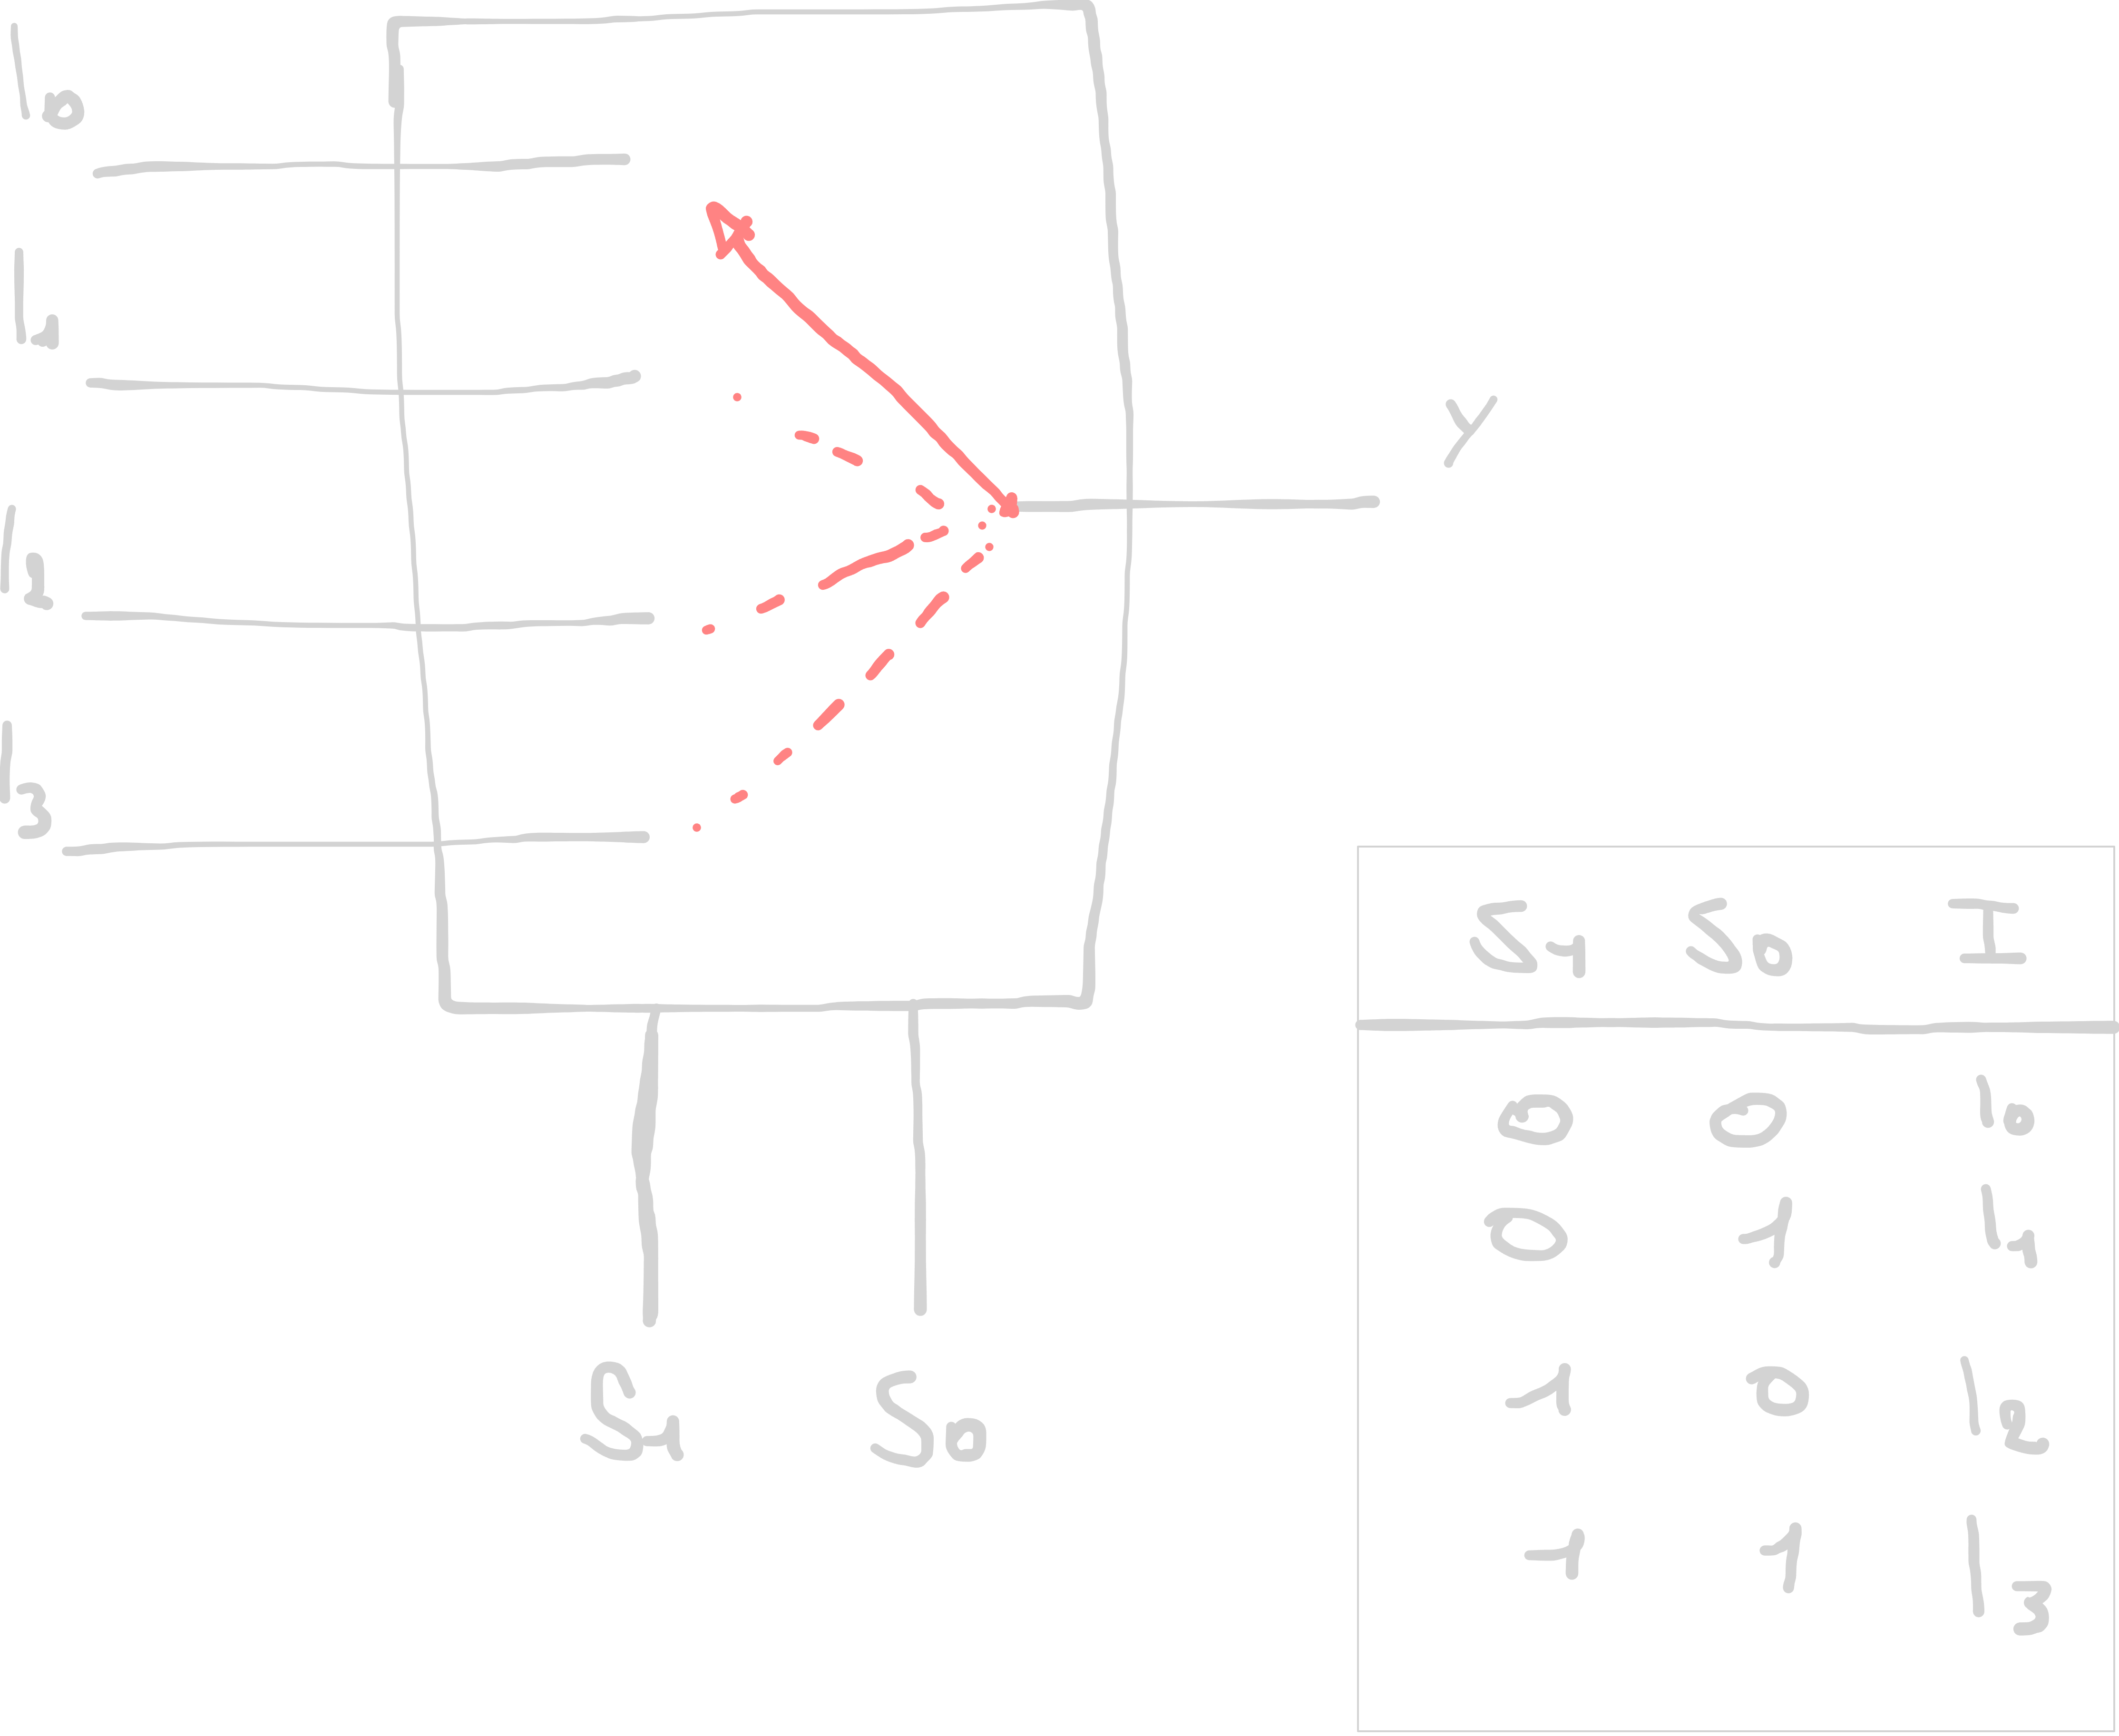 I0
I1
I2
I3
Y
S1 S0
S1 S0 I
0 0 I0
0 1 I1
1 0 I2
1 1 I3